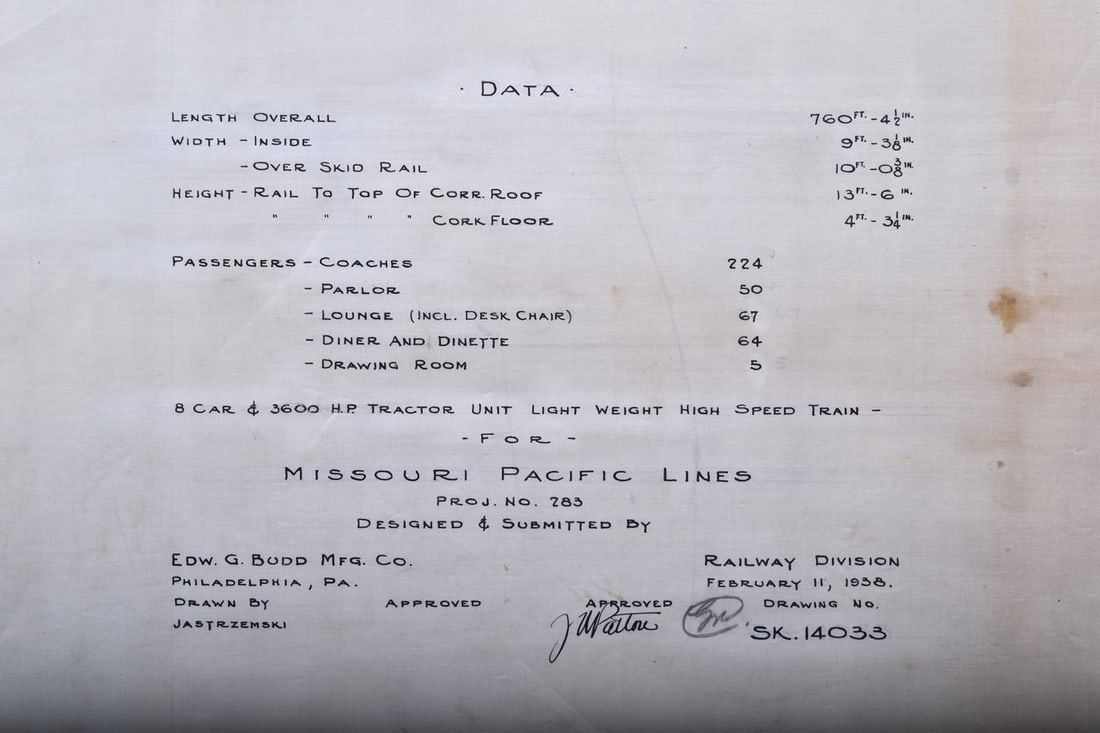 · DATA ·
LENGTH OVERALL 760FT.-4 1/2 IN.
WIDTH - INSIDE 9FT.-3 1/8 IN.
- OVER SKID RAIL 10FT.-0 3/8 IN.
HEIGHT - RAIL TO TOP OF CORR. ROOF 13FT.-6 IN.
" " " " CORK FLOOR 4FT.-3 1/4 IN.
PASSENGERS - COACHES 224
- PARLOR 50
- LOUNGE (INCL. DESK CHAIR) 67
- DINER AND DINETTE 64
- DRAWING ROOM 5
8 CAR & 3600 H.P. TRACTOR UNIT LIGHT WEIGHT HIGH SPEED TRAIN -
- FOR -
MISSOURI PACIFIC LINES
PROJ. NO. 283
DESIGNED & SUBMITTED BY
EDW. G. BUDD MFG. CO. RAILWAY DIVISION
PHILADELPHIA, PA. FEBRUARY 11, 1938.
DRAWN BY APPROVED APPROVED DRAWING NO.
JASTRZEMSKI SK. 14033